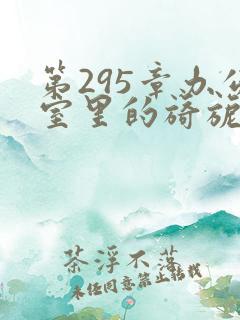 第295章办公
室里的旖旎
茶浮不落
未经同意禁止转载